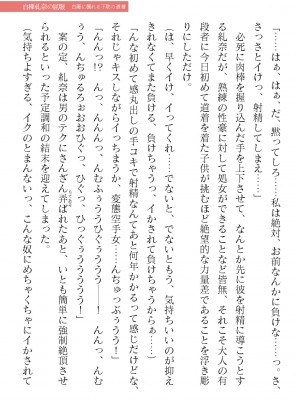 「……はぁ、はぁ、だ、黙ってしろ……私は絶対、お前なんかに負けな……っ。さ、
さっさとイけっ、射精してしまえ……」
必死に肉棒を握り込んだ手を上下させて、なんとか先に彼を射精に導こうとす
る糺奈だが、熟練の性豪に対して処女ができることなど皆無。それこそ大人の有
段者に今日初めて道着を着た子供が挑むほど絶望的な力量差であることを浮き彫
「は、早くイけ、イってくれ……でないと、でないともう、気持ちいいのが抑え
きれなくてまた負ける、負けちゃうっ、イかされて負けちゃうからぁ……」
「んな初めて感丸出しの手コキで射精なんてあと何年かかるかって感じだけどな、
それじゃキスしながらイっちまうか　変態空手女……んちゅっぷぅうう！」
案の定、糺奈は男のテクにさんざん弄ばれたあと、いとも簡単に強制絶頂させ
られるといった予定調和の結末を迎えてしまった。
（気持ちよすぎる、イクのとまんないっ、こんな奴にめちゃくちゃにイかされて